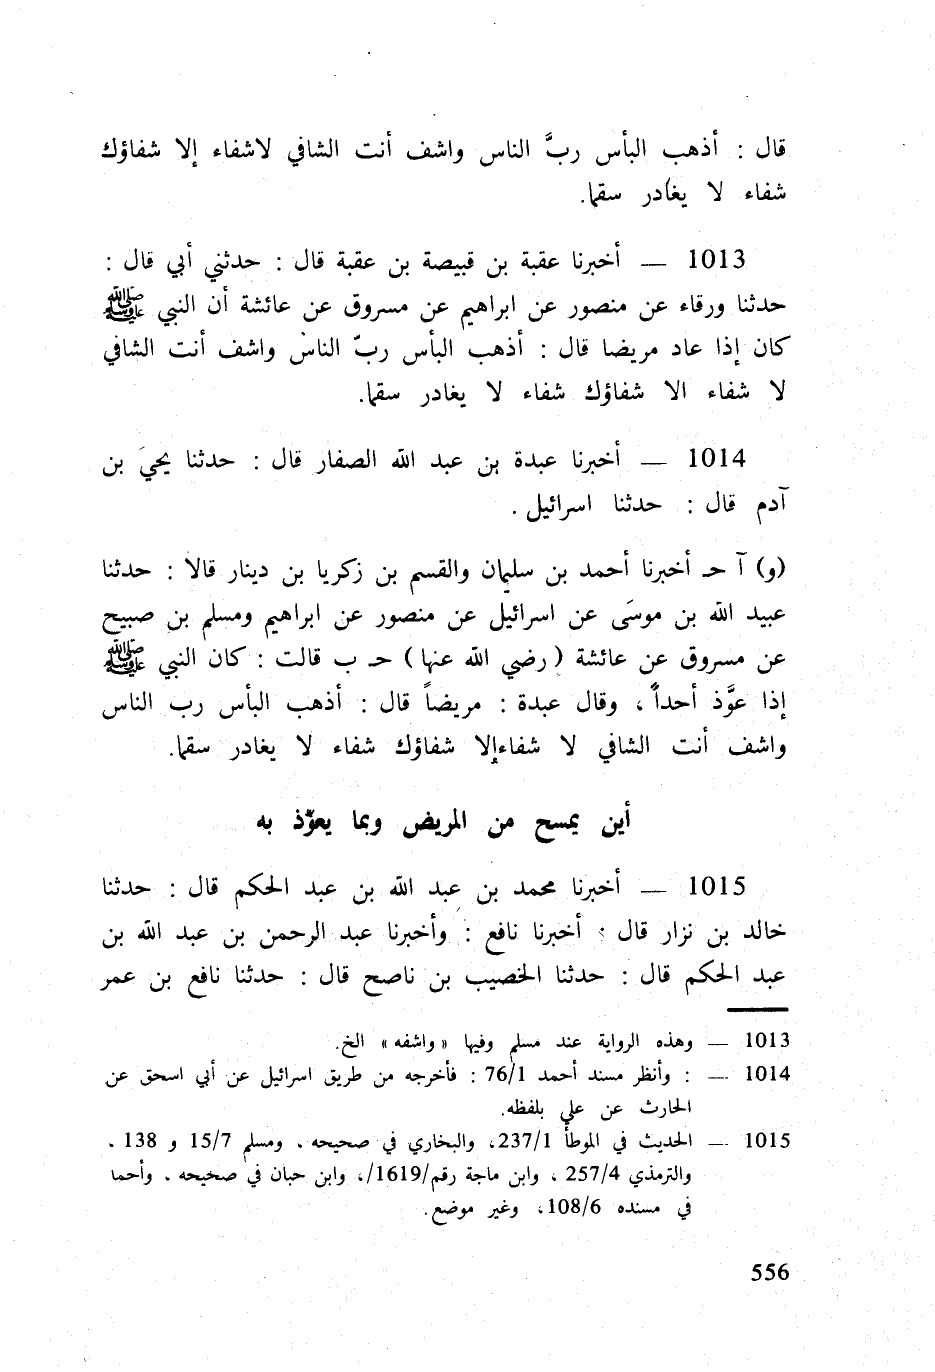 قال : أذهب البأس ربَّ الناس واشف أنت الشافي لاشفاء إلا شفاؤك
شفاء لا يغادر سقما.
1013 — أخبرنا عقبة بن قبيصة بن عقبة قال : حدثني أبي قال :
حدثنا ورقاء عن منصور عن ابراهيم عن مسروق عن عائشة أن النبي ﷺ
كان إذا عاد مريضا قال : أذهب البأس ربّ الناس واشف أنت الشافي
لا شفاء الا شفاؤك شفاء لا يغادر سقما.
1014 — أخبرنا عبدة بن عبد الله الصفار قال : حدثنا يحيَ بن
آدم قال : حدثنا اسرائيل .
(و) آ حـ أخبرنا أحمد بن سليمان والقسم بن زكريا بن دينار قالا : حدثنا
عبيد الله بن موسَى عن اسرائيل عن منصور عن ابراهيم ومسلم بن صبيح
عن مسروق عن عائشة ( رضي الله عنها ) حـ ب قالت : كان النبي ﷺ
إذا عوَّذ أحداً ، وقال عبدة : مريضاً قال : أذهب البأس رب الناس
واشف أنت الشافي لا شفاءإلا شفاؤك شفاء لا يغادر سقما.
أين يمسح من المريض وبما يعوّذ به
1015 — أخبرنا محمد بن عبد الله بن عبد الحكم قال : حدثنا
خالد بن نزار قال : أخبرنا نافع : وأخبرنا عبد الرحمن بن عبد الله بن
عبد الحكم قال : حدثنا الخصيب بن ناصح قال : حدثنا نافع بن عمر
1013 — وهذه الرواية عند مسلم وفيها «واشفه» الخ.
1014 — : وأنظر مسند أحمد 76/1 : فأخرجه من طريق اسرائيل عن أبي اسحق عن
الحارث عن علي بلفظه.
1015 — الحديث في الموطأ 237/1، والبخاري في صحيحه ، ومسلم 15/7 و 138 .
والترمذي 257/4 ، وابن ماجة رقم/1619/، وابن حبان في صحيحه . وأحما
في مسنده 108/6، وغير موضع.
556